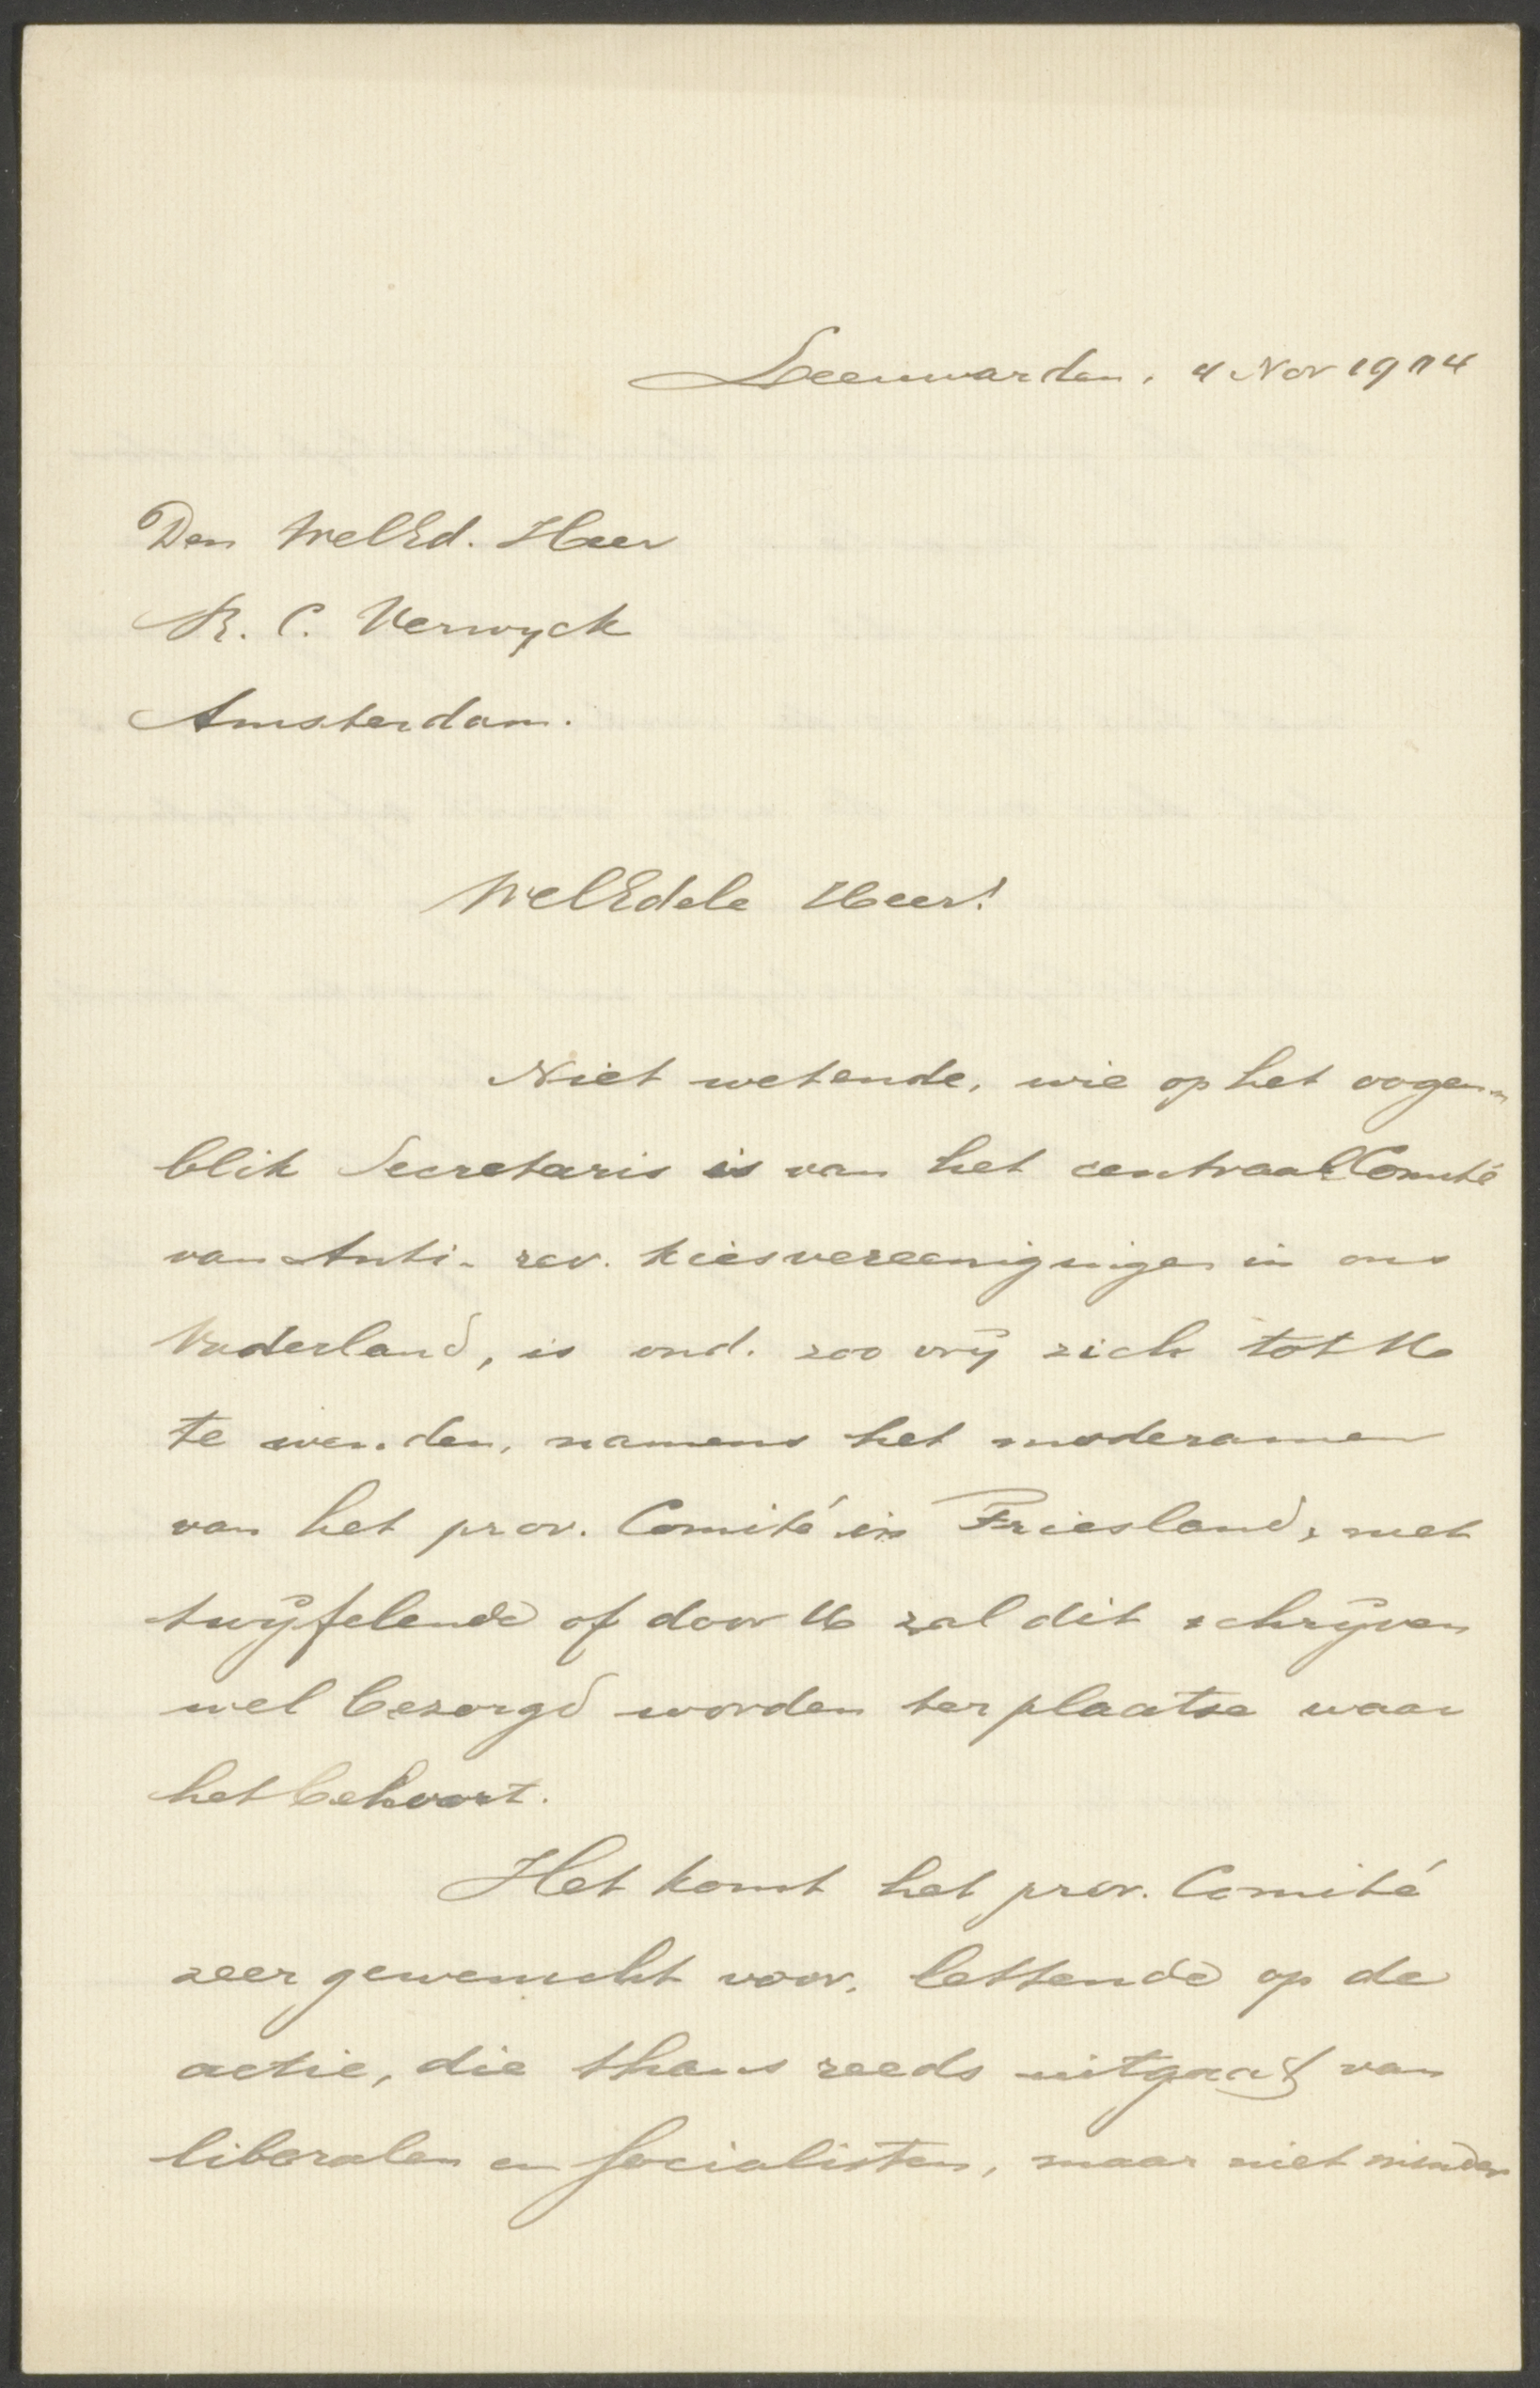 Leeuwarden, 4 Nov 1904
Den WelEd. Heer
R. C. Verwyck
Amsterdam.
WelEdele Heer!
Niet wetende, wie op het oogen-
blik Secretaris is van het centraal Comité
van Anti-rev. Kiesvereenigingen in ons
Vaderland, is ond. zoo vrij zich tot U
te wenden, namens het moderamen
van het prov. Comité in Friesland, niet
twijfelende of door U zal dit schrijven
wel bezorgd worden ter plaatse waar
het behoort.
Het komt het prov. Comité
zeer gewenscht voor, lettende op de
actie, die thans reeds uitgaat van
liberalen en Socialisten, maar niet minder